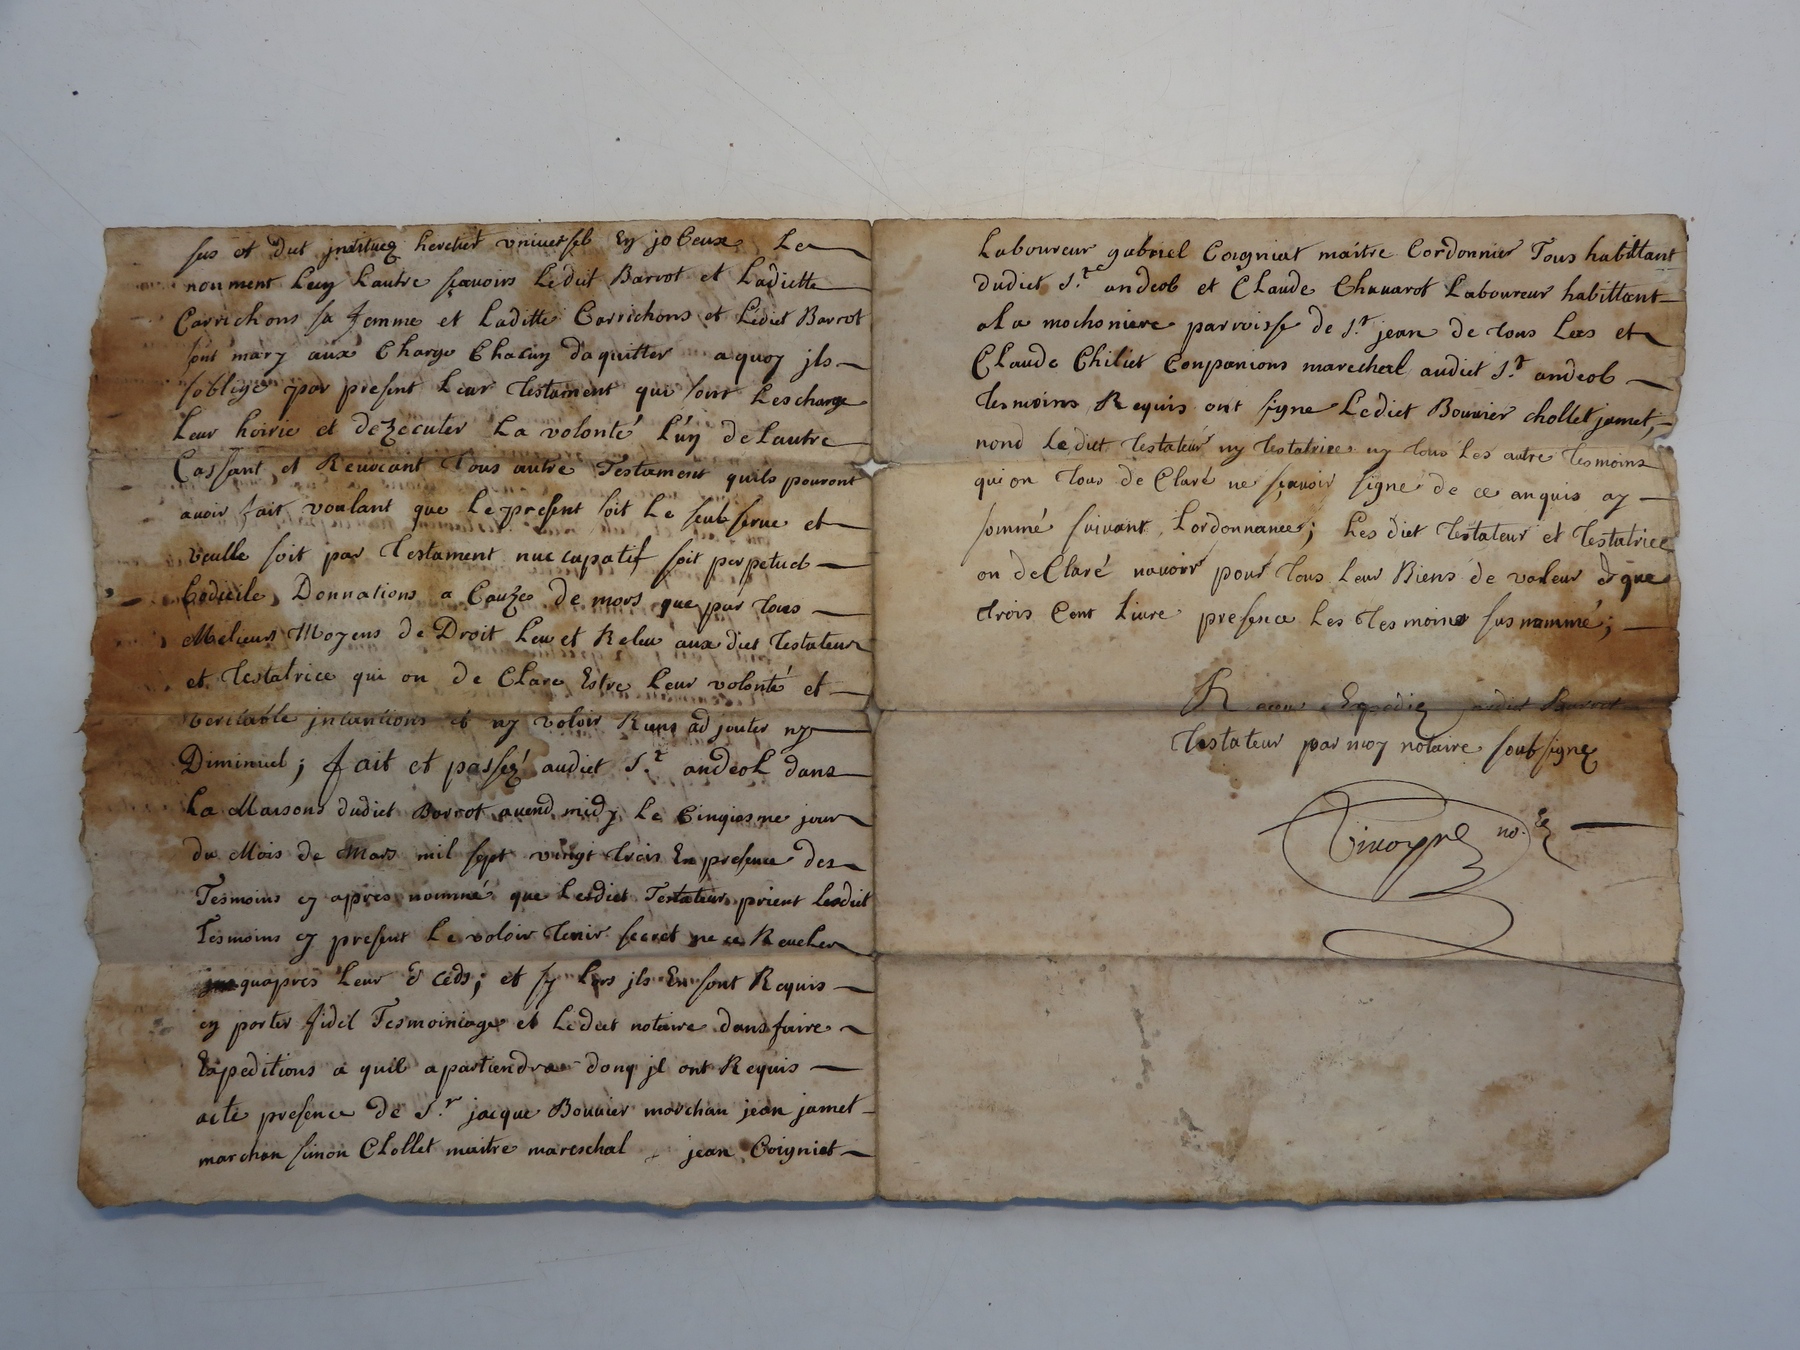 sus et dict instituez heretier vniversel Ey jo Ceux Le
nonment Luy Lautre sçavoirs Ledict Barrot et Ladictte
Carrichons sa femme et Laditte Carrichons et Ledict Barrot
sont mary aux Charge Chacuy d'aquitter a quoy jls
soblige par present Leur testament qui soint Les charge
Leur hoirie et deZecuter La volonté L'uy de Lautre
Cassant et Revocant tous autre Testament quils pouront
avoir fait voulant que Le present soit Le seul serve et
veulle soit par testament nuccupatif soit perpetuel
Codicile, Donnations a CauZe de mors que par tous
Melieurs Moyens de Droit Leu et Releu aux dict testateur
et testatrice qui on de Clare Estre Leur volonté et
veritable jntantions et ny voloir Riens adjouter ny
Diminuel ; fait et passez audict St andeol dans
La Maisons dudict Barrot avend midy Le Cinqiesme jour
du Mois de Mars mil sept vingt trois En presence des
Tesmoins cy apres nommé que Lesdict Testateur prient Lesdict
Tesmoins cy present Le voloir tenir secret ne ce Reveler
quapres Leur d ceds ; et sy Lors jls En sont Requis
ey porter fidel Tesmoiniage et Ledict notaire dans faire
Expeditions a quil apartiendra donq jl ont Requis
acte presence de Sr jacque Bouvier marchan jean jamet
marchan simon Chollet maitre mareschal jean Coigniet
Laboureur gabriel Coigniat maitre Cordonnier Tous habittant
dudict St andeol et Claude Chavarot Laboureur habittant
a La mochoniere parroisse de St jean de tous Las et
Claude Chiliet Conpanions marechal audict St andeol
tesmoins Requis ont signe Ledict Bouvier chollet jamet,
nond Le dict testateur ny testatrice ny tous Les autre tesmoins
qui on tous de Claré ne sçavoir signe de ce anquis ay
sommé suivant Lordonnance ; Les dict testateur et testatrice
on deClaré navoir pour tous Leur Biens de valeur que
trois Cent Livre presence Les tesmoins susnommé ;
Expediez audict Barrot
testateur par moy notaire soubsigne
no.re